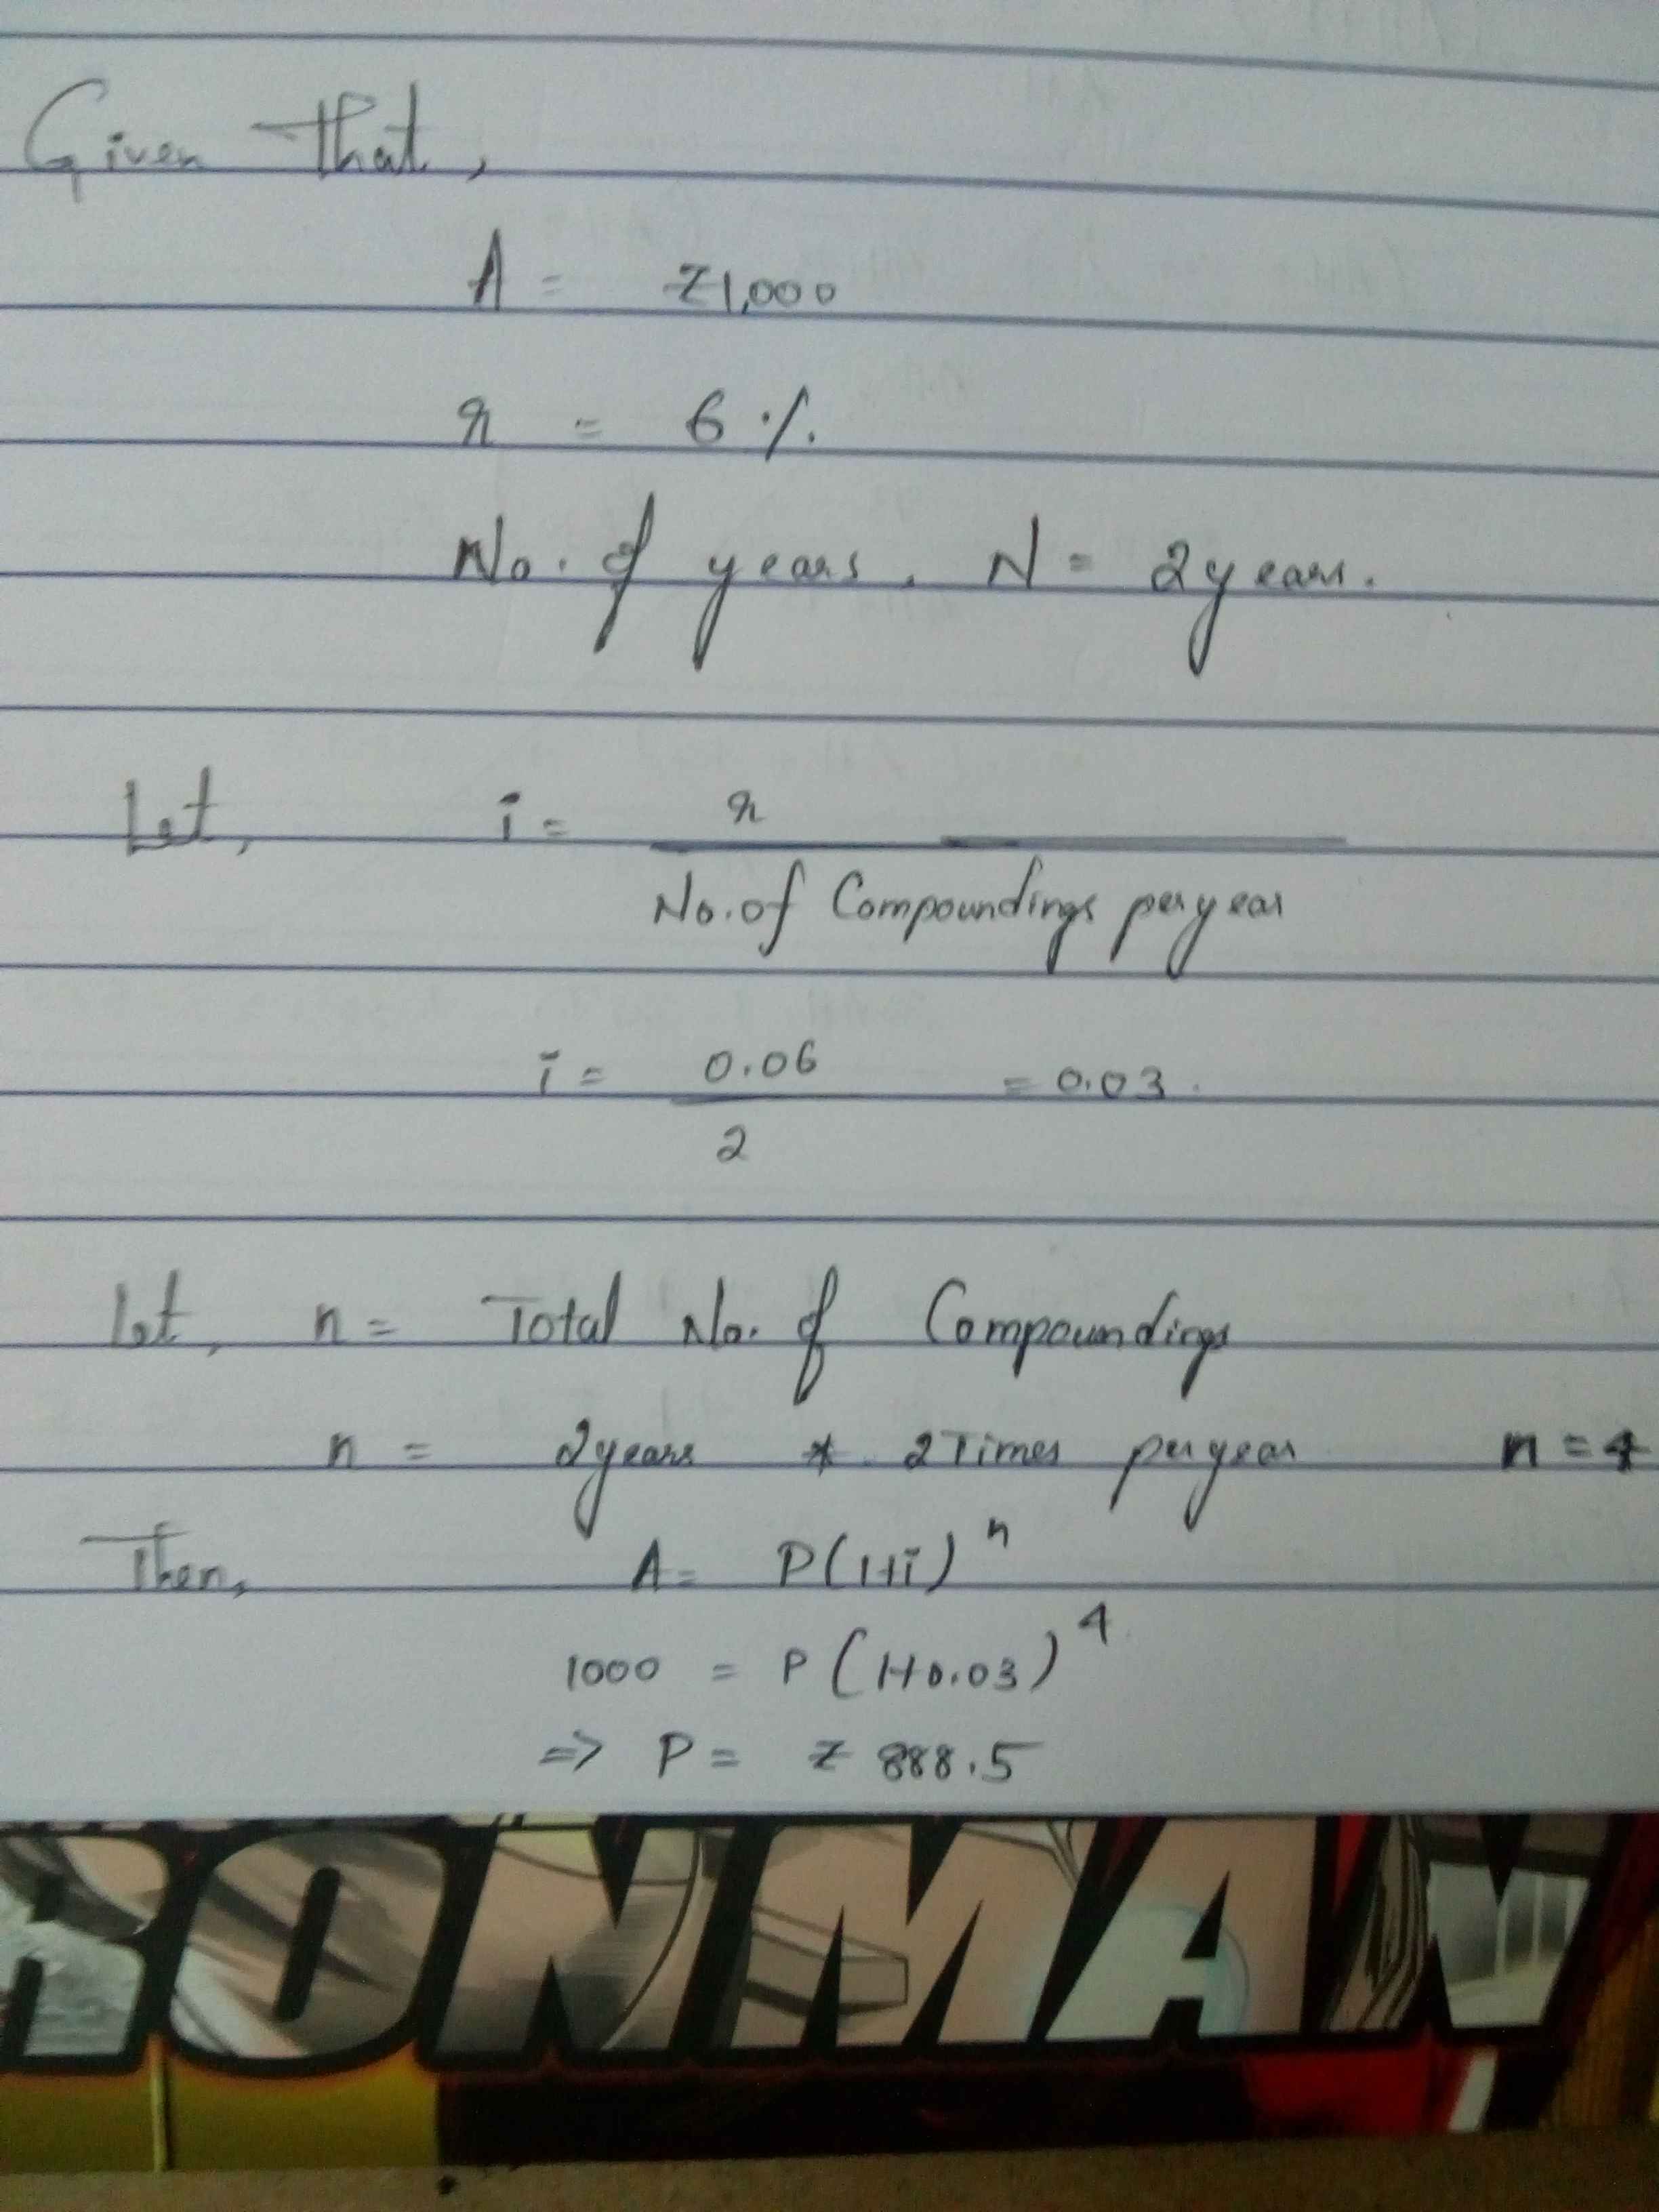 Given That,
A = ₹1,000
r = 6 %.
No. of years, N = 2 years.
Let, i = r
No. of Compoundings per year
i = 0.06 = 0.03.
2
Let, n = Total No. of Compoundings
n = 2 years * 2 Times per year n = 4
Then, A = P(1+i)^n
1000 = P(1+0.03)^4
=> P = ₹ 888.5
RONMAN